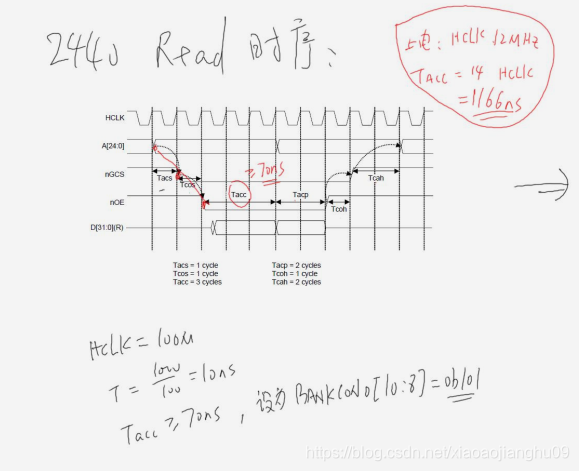 2440 Read 时序:
上电: HCLK 12MHz
TACC = 14 HCLK
= 1166ns
HCLK
A[24:0]
nGCS
nOE
D[31:0](R)
Tacs
Tcos
≥70ns
Tacc
Tacp
Tcoh
Tcah
Tacs = 1 cycle
Tcos = 1 cycle
Tacc = 3 cycles
Tacp = 2 cycles
Tcoh = 1 cycle
Tcah = 2 cycles
HCLK = 100M
T = 1000/100 = 10ns
Tacc ≥ 70ns, 设为 BANKCON0[10:8] = 0b101
https://blog.csdn.net/xiaoaojianghu09